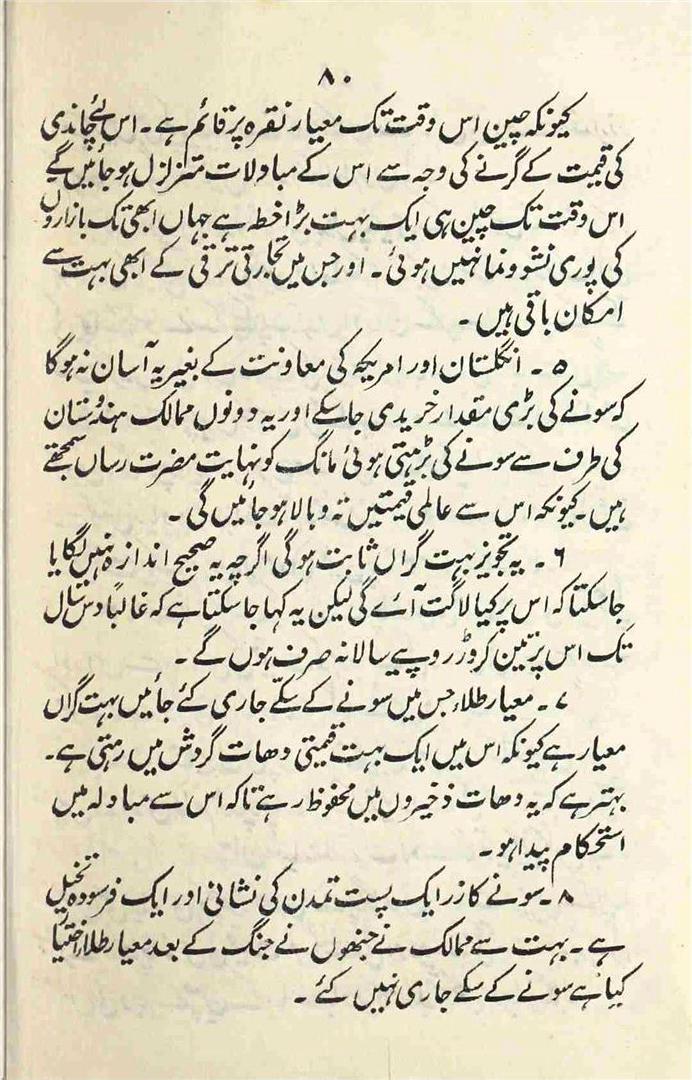 ۸۰
کیونکہ چین اس وقت تک معیار نقرہ پر قائم ہے۔ اس لئے چاندی
کی قیمت کے گرنے کی وجہ سے اس کے مباولات متزلزل ہوجائیں گے
اس وقت تک چین ہی ایک بہت بڑا خطہ ہے جہاں ابھی تک بازاروں
کی پوری نشو ونما نہیں ہوئی۔ اور جس میں تجارتی ترقی کے ابھی بہت سے
امکان باقی ہیں۔
۵۔ انگلستان اور امریکہ کی معاونت کے بغیر یہ آسان نہ ہوگا
کہ سونے کی بڑی مقدار خریدی جاسکے اور یہ دونوں ممالک ہندوستان
کی طرف سے سونے کی بڑھتی ہوئی مانگ کو نہایت مضرت رساں سمجھتے
ہیں۔ کیونکہ اس سے عالمی قیمتیں تہ و بالا ہوجائیں گی۔
۶۔ یہ تجویز بہت گراں ثابت ہوگی اگرچہ یہ صحیح اندازہ نہیں لگایا
جاسکتا کہ اس پر کیا لاگت آے گی لیکن یہ کہا جاسکتا ہے کہ غالباً دس سال
تک اس پر تین کروڑ روپیے سالانہ صرف ہوں گے۔
۷۔ معیار طلاء جس میں سونے کے سکّے جاری کئے جائیں بہت گراں
معیار ہے کیونکہ اس میں ایک بہت قیمتی دھات گردش میں رہتی ہے۔
بہتر ہے کہ یہ دھات ذخیروں میں محفوظ رہے تاکہ اس سے مبادلہ میں
استحکام پیدا ہو۔
۸۔ سونے کا زر ایک پست تمدن کی نشانی اور ایک فرسودہ تخیل
ہے۔ بہت سے ممالک نے جنھوں نے جنگ کے بعد معیار طلاء اختیار
کیا ہے سونے کے سکے جاری نہیں کئے۔